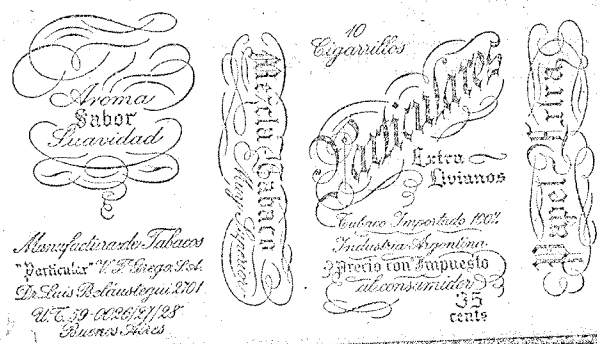 Aroma
Sabor
Suavidad
Manufactura de Tabacos
"Particular" V. F. Grego. S.A.
Dr. Luis Beláustegui 2701
U.T. 59-0026/27/28
Buenos Aires
Mezcla Tabaco
Muy Superior
10
Cigarrillos
Particulares
Extra
Livianos
Tabaco Importado 100%
Industria Argentina
Precio con Impuesto
al consumidor
35
cents
Papel Extra